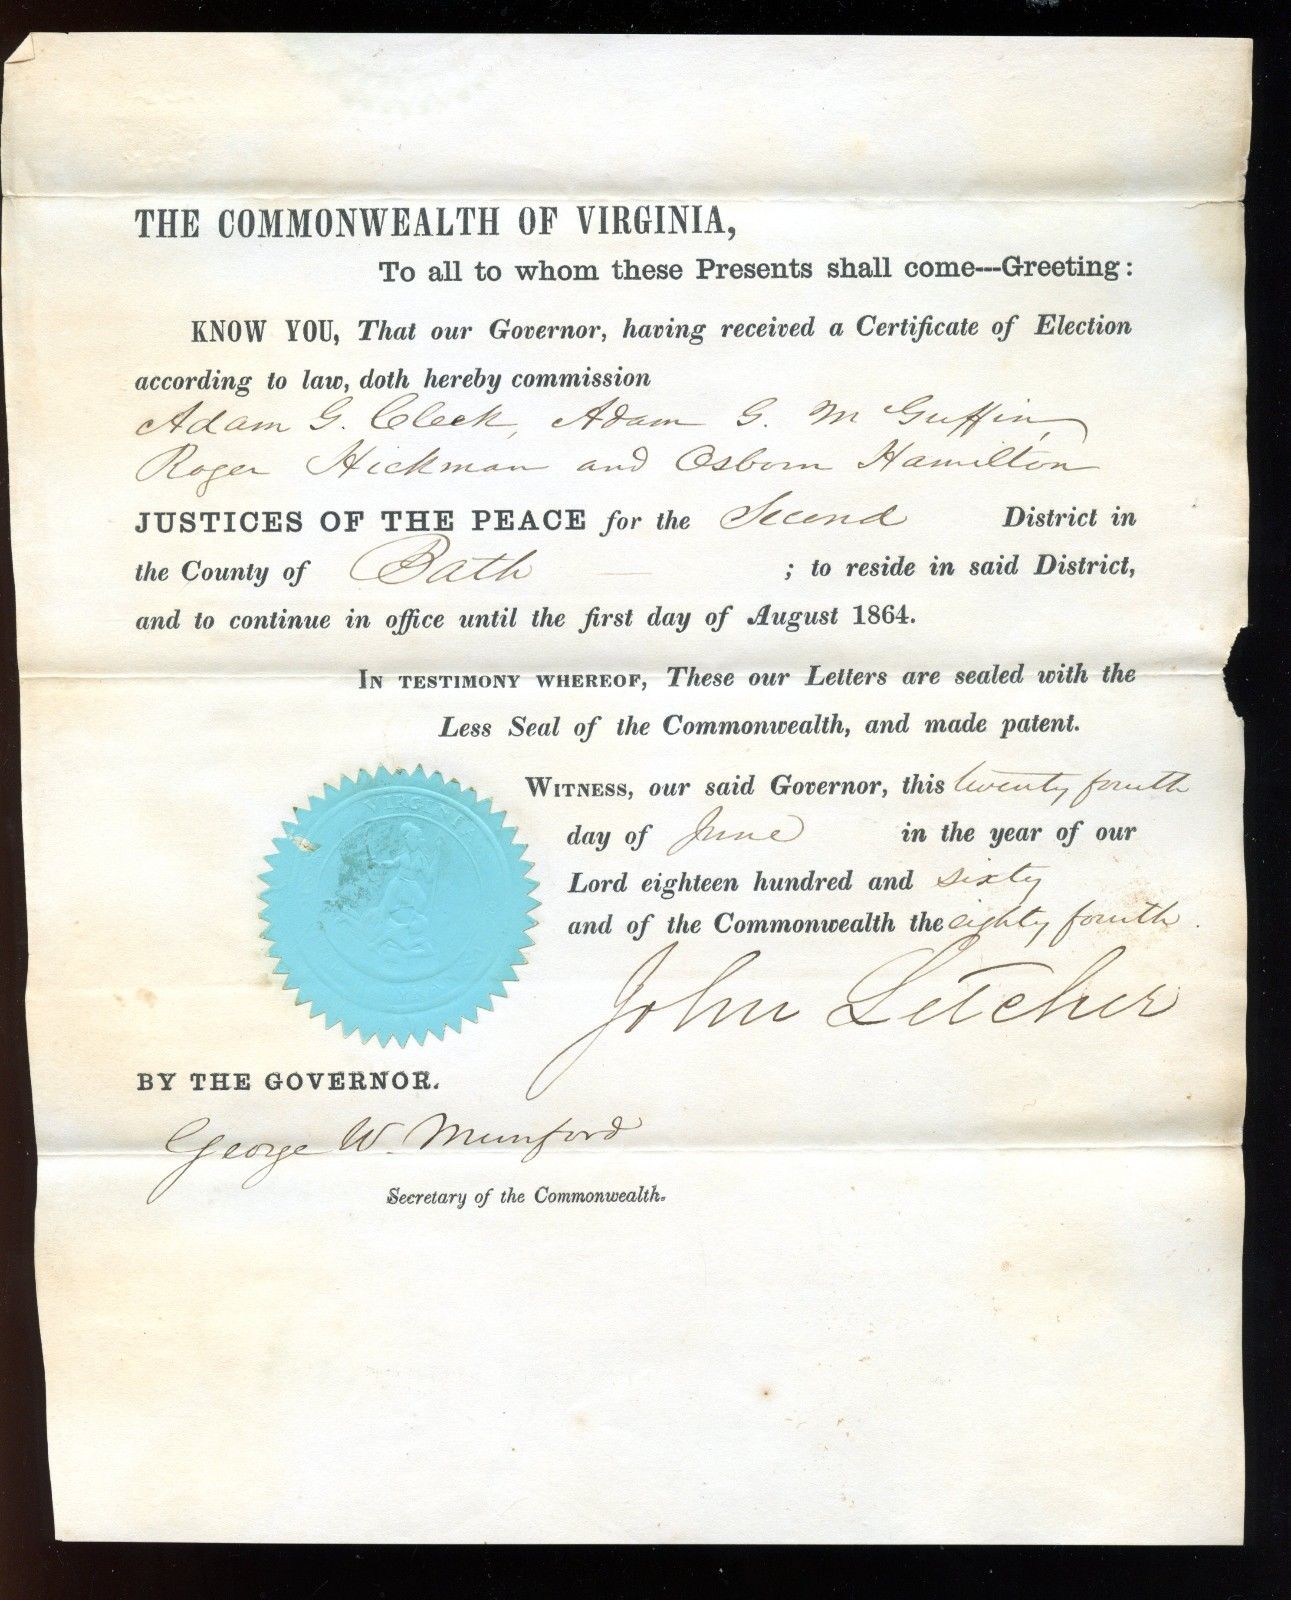 THE COMMONWEALTH OF VIRGINIA,
To all to whom these Presents shall come---Greeting:
KNOW YOU, That our Governor, having received a Certificate of Election
according to law, doth hereby commission
Adam G. Cleek, Adam G. McGuffin,
Roger Hickman and Osborn Hamilton
JUSTICES OF THE PEACE for the Second District in
the County of Bath ; to reside in said District,
and to continue in office until the first day of August 1864.
IN TESTIMONY WHEREOF, These our Letters are sealed with the
Less Seal of the Commonwealth, and made patent.
WITNESS, our said Governor, this twenty fourth
day of June in the year of our
Lord eighteen hundred and sixty
and of the Commonwealth the eighty fourth.
VIRGINIA
John Letcher
BY THE GOVERNOR.
George W. Munford
Secretary of the Commonwealth.